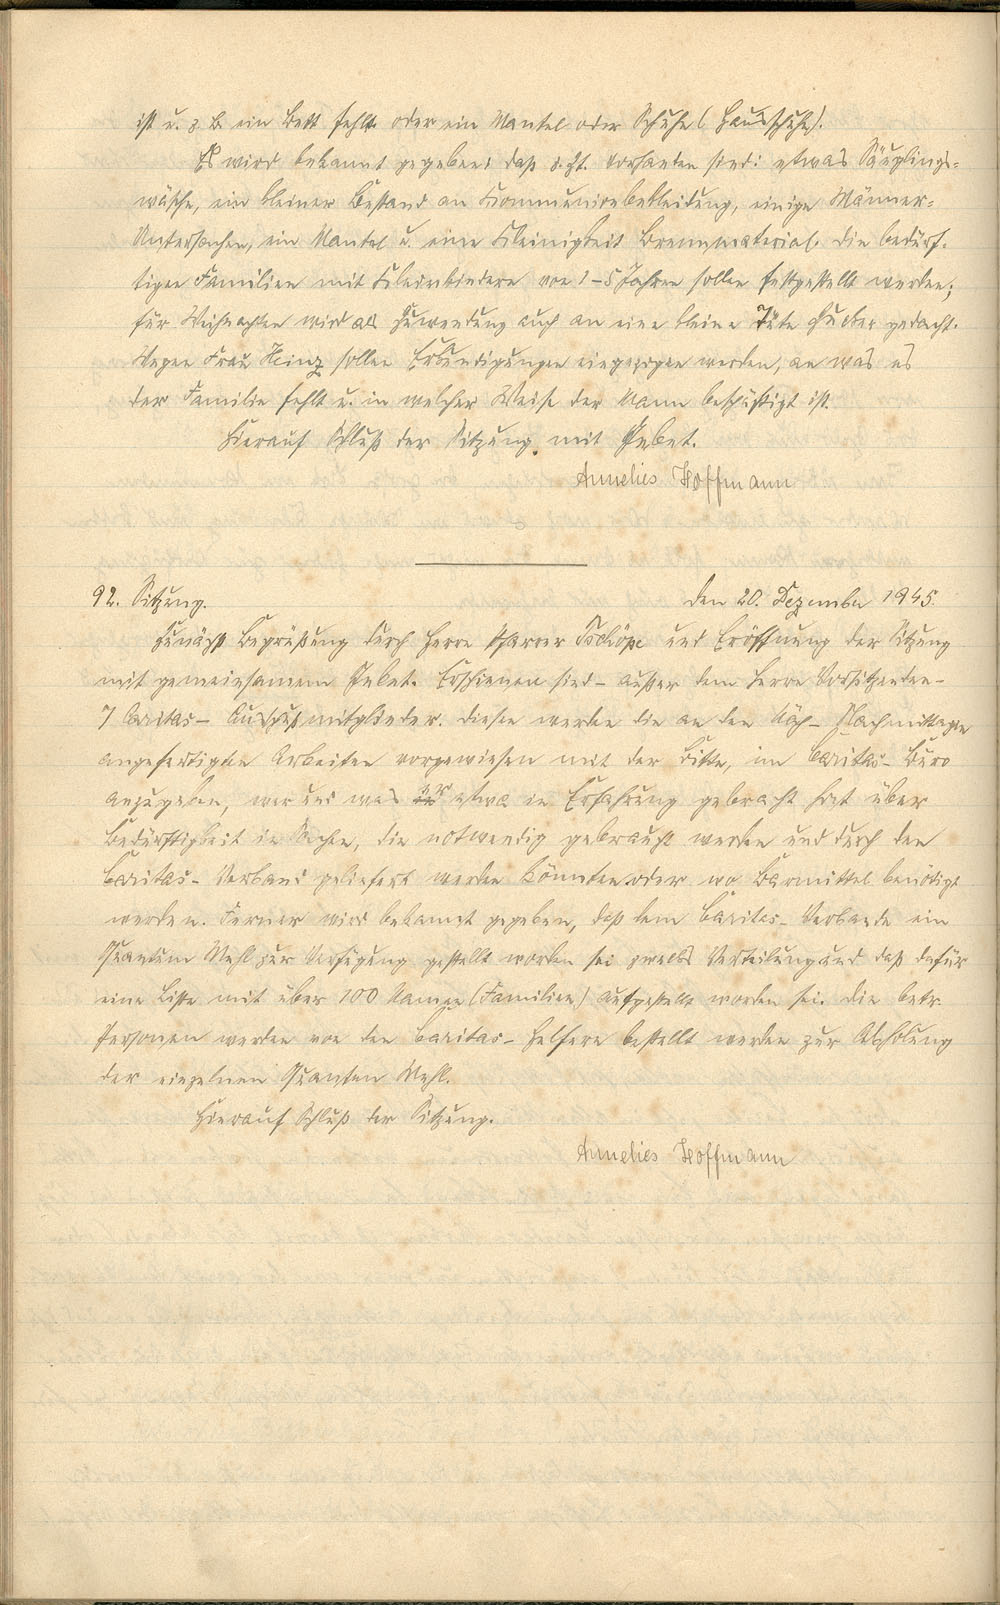 ist u. z. B. ein Bett fehlt oder ein Mantel oder Schuhe (Hausschuhe).
Es wird bekannt gegeben, daß z. Zt. vorhanden sind: etwas Säuglings-
wäsche, ein kleiner Bestand an Kommunionbekleidung, einige Männer-
Untersachen, ein Mantel u. eine Kleinigkeit Brennmaterial. Die bedürf-
tigen Familien mit Kleinkindern von 1–5 Jahren sollen festgestellt werden;
für Weihnachten wird als Zuwendung auch an eine kleine Tüte Zucker gedacht.
Wegen Frau Heinz sollen Erkundigungen eingezogen werden, an was es
der Familie fehlt u. in welcher Weise der Mann beschäftigt ist.
Hierauf Schluß der Sitzung mit Gebet.
Annelies Hoffmann
92. Sitzung. den 20. Dezember 1945.
Zunächst Begrüßung durch Herrn Pfarrer und Eröffnung der Sitzung
mit gemeinsamem Gebet. Erschienen sind – außer dem Herrn Vorsitzenden –
7 Caritas-Ausschußmitglieder. Diesen werden die an den Näh-Nachmittagen
angefertigten Arbeiten vorgewiesen mit der Bitte, im Caritas-Büro
anzugeben, wer und was er etwa in Erfahrung gebracht hat über
Bedürftigkeit in Sachen, die notwendig gebraucht werden und durch den
Caritas-Verband geliefert werden könnten oder wo Barmittel benötigt
werden. Ferner wird bekannt gegeben, daß dem Caritas-Verbande ein
Quantum Mehl zur Verfügung gestellt worden sei zwecks Verteilung und daß dafür
eine Liste mit über 100 Namen (Familien) aufgestellt worden sei. Die betr.
Personen werden von den Caritas-Helfern bestellt werden zur Abholung
der einzelnen Quanten Mehl.
Hierauf Schluß der Sitzung.
Annelies Hoffmann